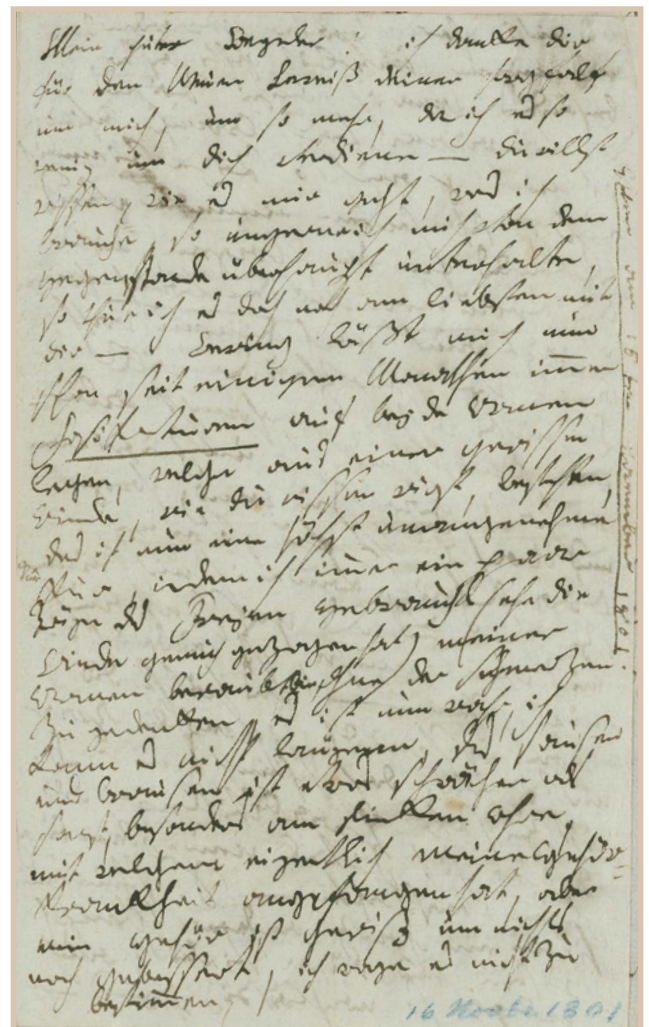 Mein guter Wegeler! ich danke dir
für den neuen Beweiß deiner sorgfalt
um mich, um so mehr, da ich es so
wenig um dich verdiene — du willst
wissen, wie es mir geht, was ich
brauche, so ungern ich mich von dem
gegenstande überhaupt unterhalte,
so thue ich es doch noch am liebsten mit
dir — Wering läßt mich nun
schon seit einigen Monathen im̅er
Vesikaturen auf beyde Armen
legen, welche aus einer gewissen
Rinde, wie du wissen wirst, bestehen,
das ist nun eine höchst unangenehme
Kur, indem ich im̅er ein paar
Täge des Freyen gebrauchs (ehe die
Rinde genug gezogen hat) meiner
Armen beraubt bin, ohne der schmerzen
zu gedenken, es ist nun wahr, ich
kann es nicht läugnen, das sausen
und brausen ist etwas schwächer als
sonst, besonders am linken ohre,
mit welchem eigentlich meine gehör-
Krankheit angefangen hat, aber
mein gehör ist gewiß um nichts
noch gebessert, ich wage es nicht zu
bestim̅en,
am 16ten November 1801.
16 Novbr. 1801